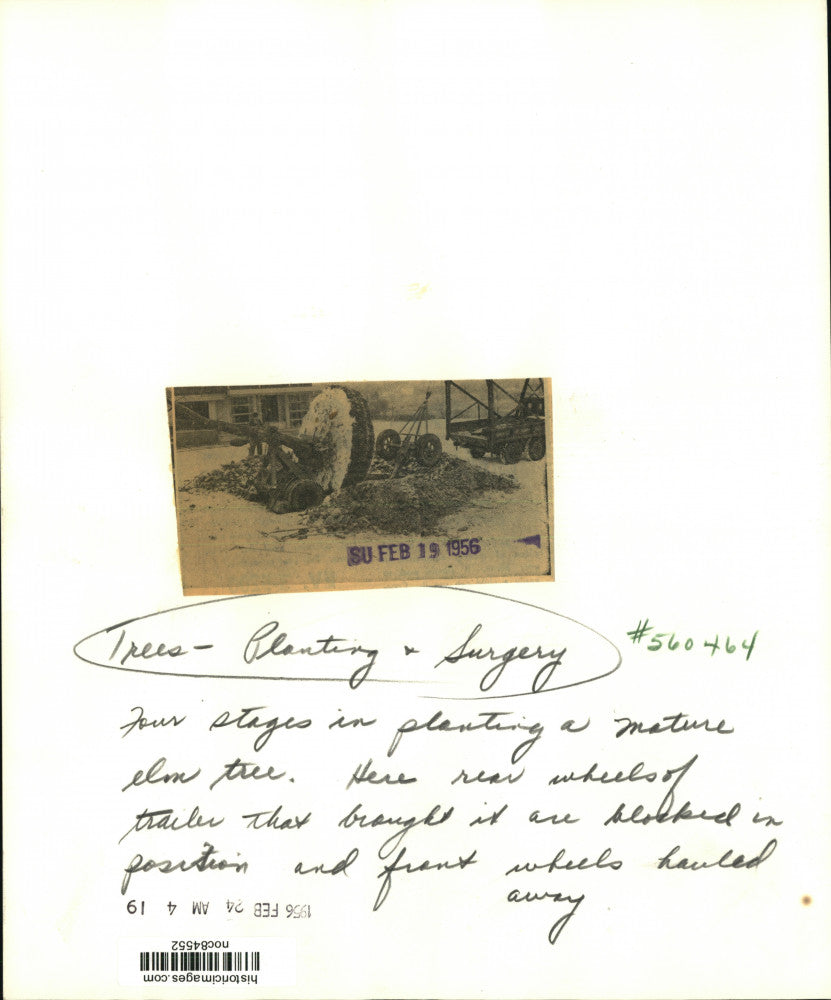 SU FEB 19 1956
Trees - Planting & Surgery
#560464
Four stages in planting a mature
elm tree. Here rear wheels of
trailer that brought it are blocked in
position and front wheels hauled
away
1956 FEB 24 AM 4 19
noc84552
historicimages.com